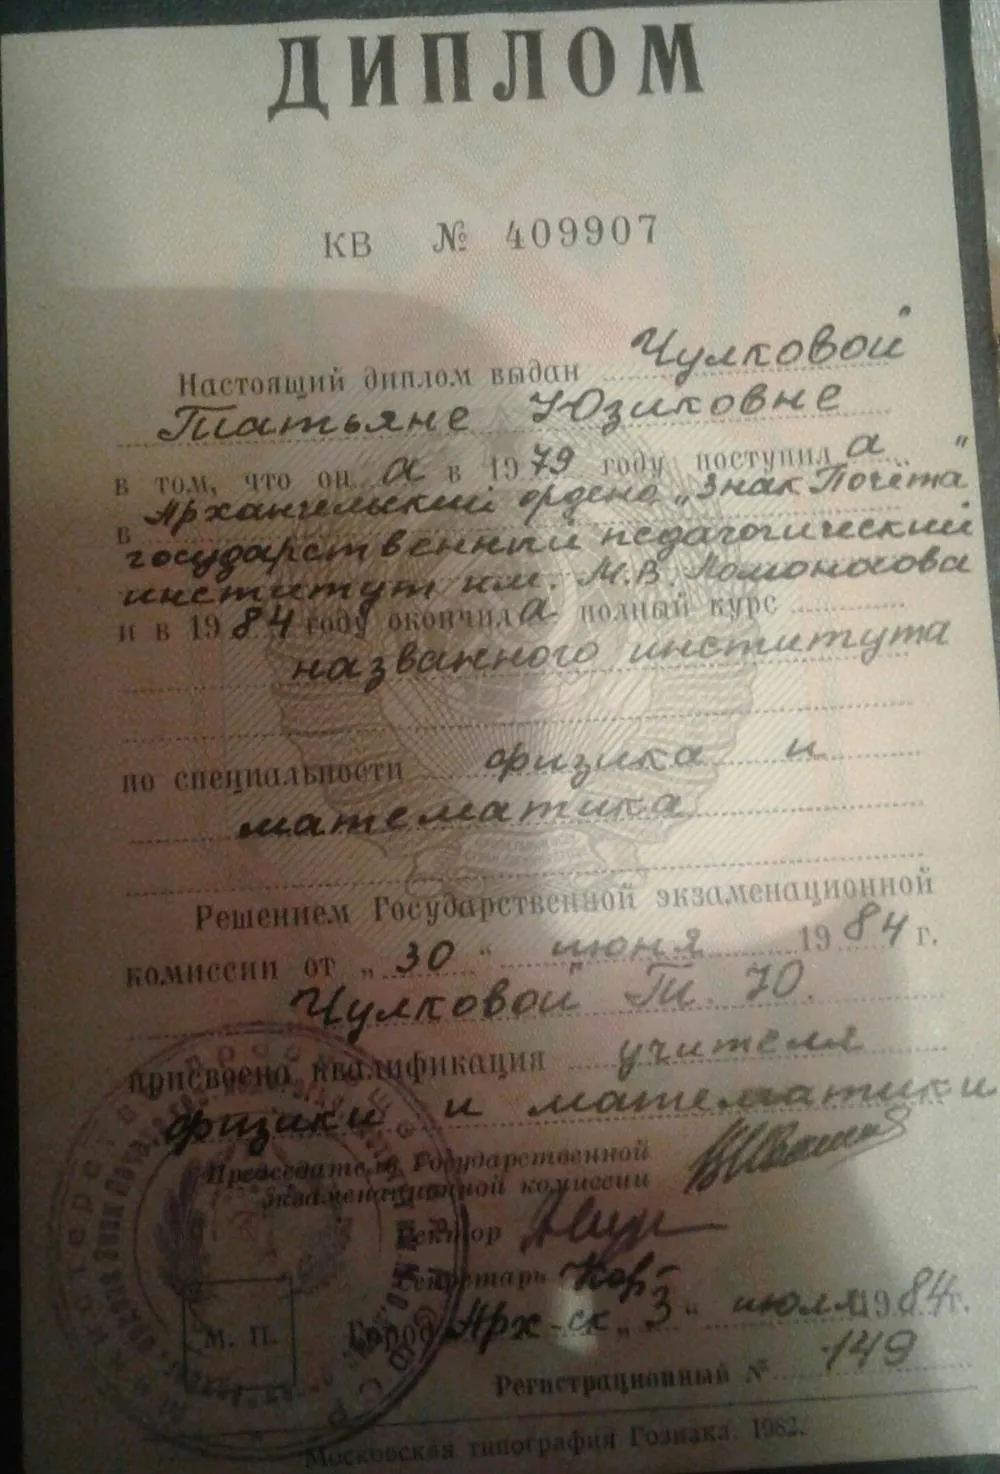 ДИПЛОМ
КВ № 409907
Настоящий диплом выдан Чулковой
Татьяне Юзиковне
в том, что он а в 1979 году поступил а
в Архангельский ордена „Знак Почёта"
государственный педагогический
институт им. М.В. Ломоносова
и в 1984 году окончил а полный курс
названного института
по специальности физика и
математика
Решением Государственной экзаменационной
комиссии от „30" июня 1984 г.
Чулковой Т. Ю.
присвоена квалификация учителя
физики и математики
Председатель Государственной
экзаменационной комиссии
Ректор
Секретарь
М. П.
Город Арх-ск „3" июля 1984 г.
Регистрационный № 149
Московская типография Гознака. 1982.